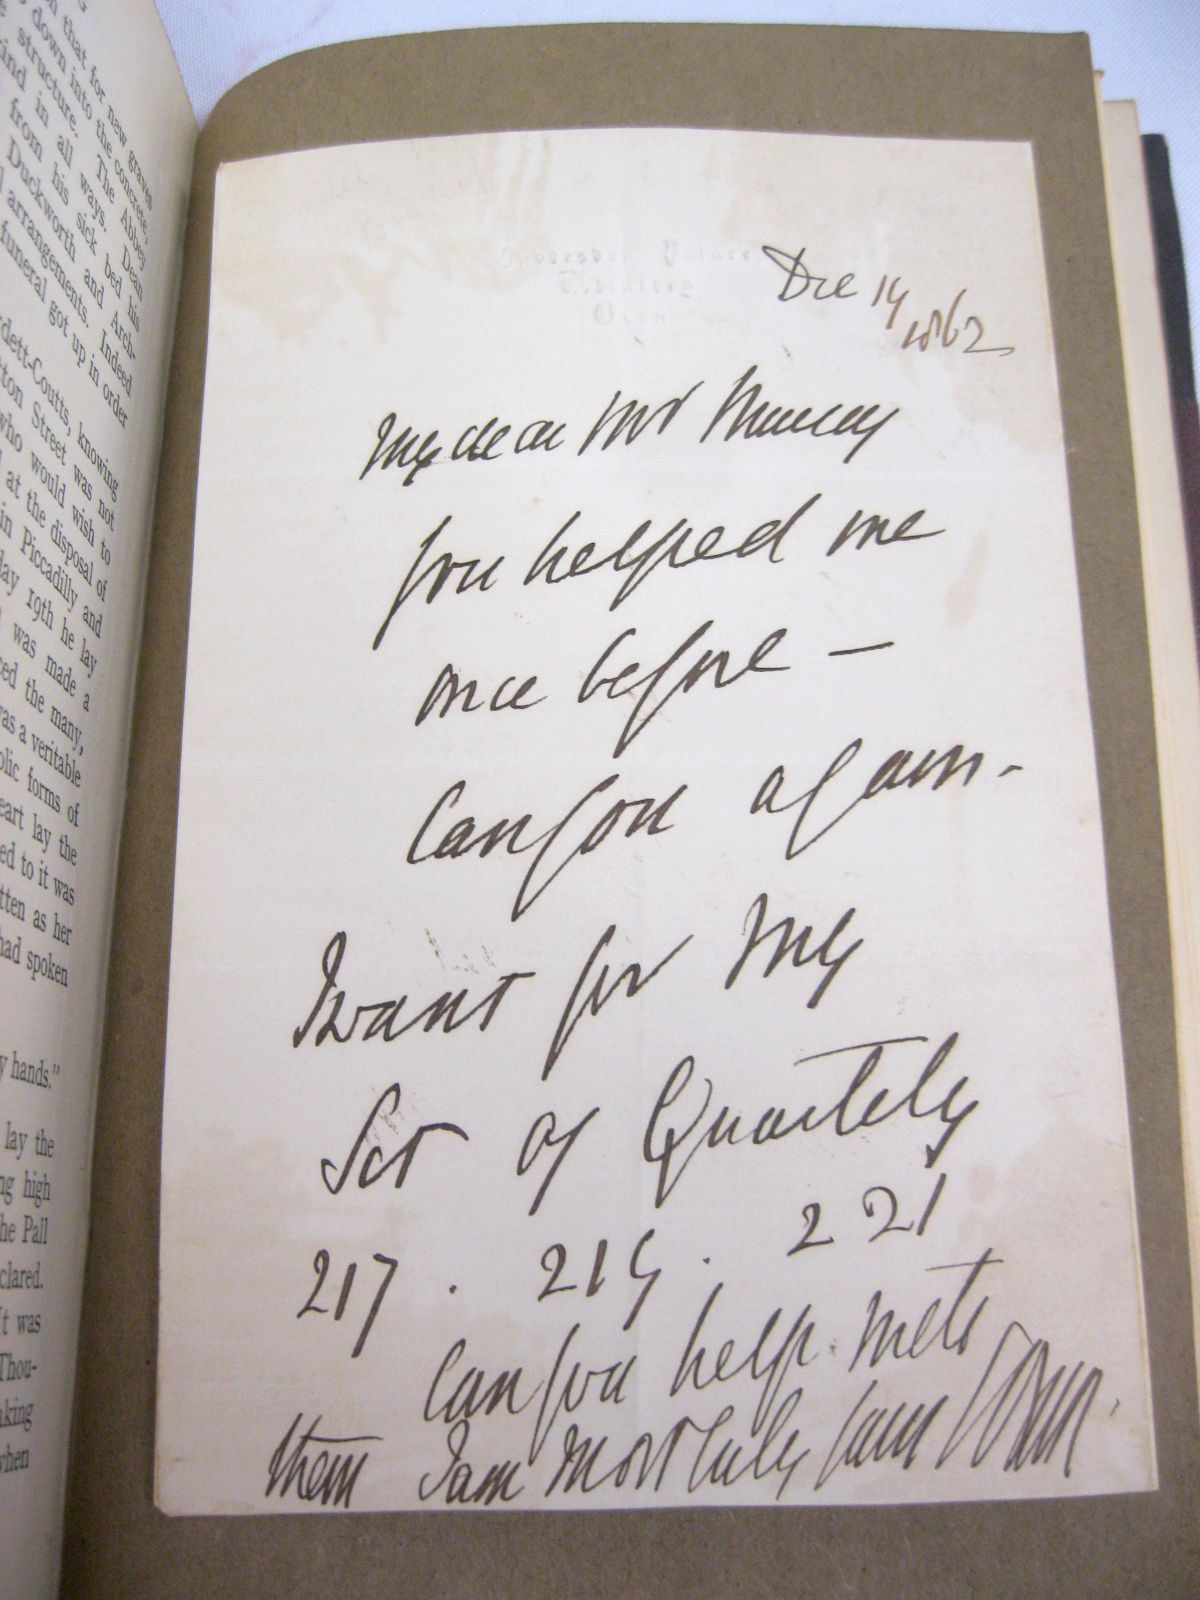 that for new graves
down into the concrete,
structure. The Abbey
kind in all ways. Dean
from his sick bed his
Duckworth and Arch-
arrangements. Indeed
funeral got up in order
rdett-Coutts, knowing
tton Street was not
who would wish to
at the disposal of
in Piccadilly and
day 19th he lay
was made a
ced the many,
was a veritable
olic forms of
eart lay the
ed to it was
tten as her
had spoken
y hands."
lay the
ng high
he Pall
clared.
It was
Thou-
aking
when
Dec 19
1862
My dear Mr Murray
You helped me
once before –
Can you again –
I want for my
Set of Quarterly
217 . 219 . 221
Can you help me to
them I am most truly